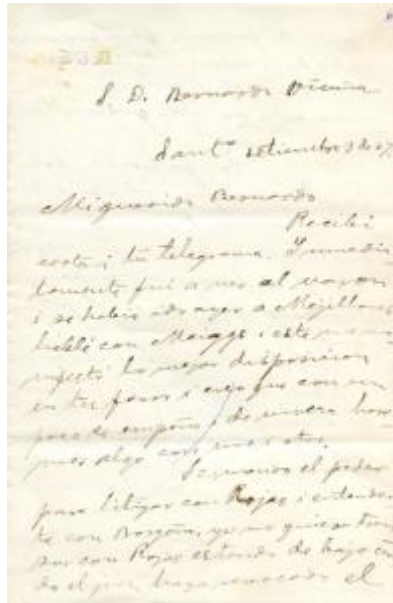 S. D. Bernardo Vicuña
Sant.º setiembre 3 de 67
Mi querido Bernardo
Recibi
carta i tu telegrama. Inmedia
tamente fui a ver al
i se habia ido ayer a Mejillones
hablé con Meiggs i este me ma
nifestó la mejor disposicion
en tu favor i creo que con un
poco de empeño i de dinero hare
mos algo con uno i otro.
Te mando el poder
para litigar con Rojas i entender
te con
sar con Rojas estando de bajo
do el haya revocado el